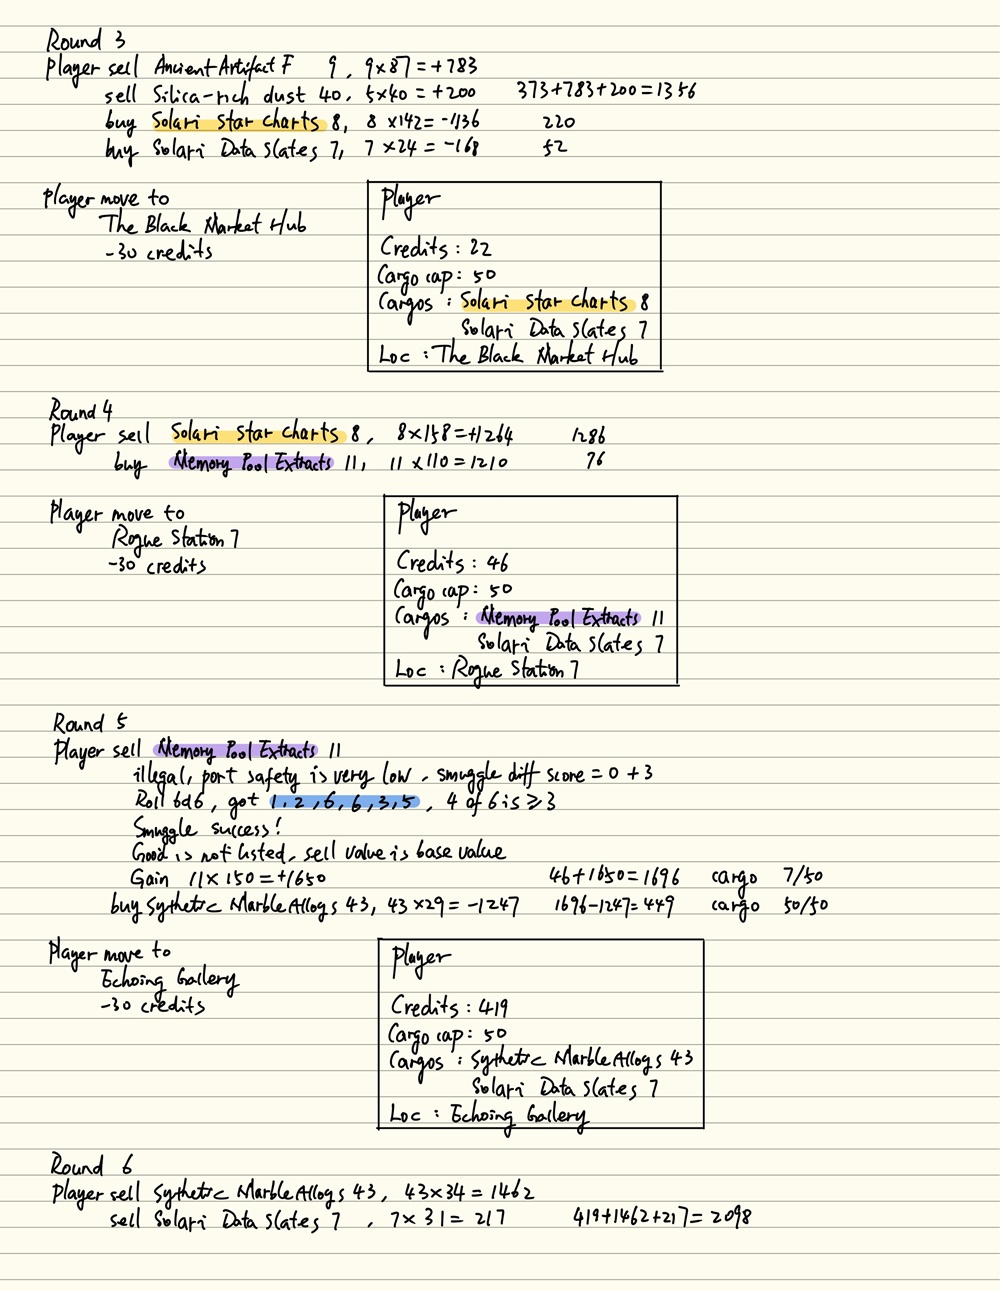 Round 3
Player sell Ancient Artifact F 9, 9×87=+783
sell Silica-rich dust 40, 5×40=+200 373+783+200=1356
buy Solari Star Charts 8, 8×142=-1136 220
buy Solari Data Slates 7, 7×24=-168 52
Player move to
The Black Market Hub
-30 credits
Player
Credits: 22
Cargo cap: 50
Cargos: Solari Star Charts 8
Solari Data Slates 7
Loc: The Black Market Hub
Round 4
Player sell Solari Star Charts 8, 8×158=+1264 1286
buy Memory Pool Extracts 11, 11×110=1210 76
Player move to
Rogue Station 7
-30 credits
Player
Credits: 46
Cargo cap: 50
Cargos: Memory Pool Extracts 11
Solari Data Slates 7
Loc: Rogue Station 7
Round 5
Player sell Memory Pool Extracts 11
illegal, port safety is very low, smuggle diff score = 0 + 3
Roll 6d6, got 1, 2, 6, 6, 3, 5, 4 of 6 is ≥3
Smuggle success!
Good is not listed, sell value is base value
Gain 11×150=+1650 46+1650=1696 cargo 7/50
buy Sythetic Marble Alloys 43, 43×29=-1247 1696-1247=449 cargo 50/50
Player move to
Echoing Gallery
-30 credits
Player
Credits: 419
Cargo cap: 50
Cargos: Sythetic Marble Alloys 43
Solari Data Slates 7
Loc: Echoing Gallery
Round 6
Player sell Sythetic Marble Alloys 43, 43×34=1462
sell Solari Data Slates 7, 7×31=217 419+1462+217=2098